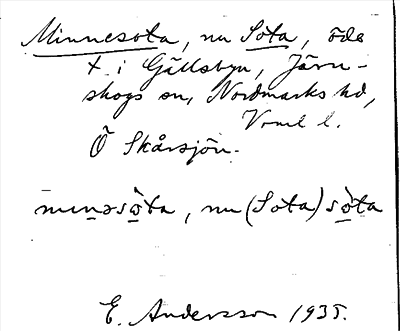 Minnesota, nu Sota, öde
t. i Gällsbyn, Järn-
skogs sn, Nordmarks hd,
Vrml l.
Ö Skårsjön.
minəsòta, nu (Sota) sòta
E. Andersson 1935.